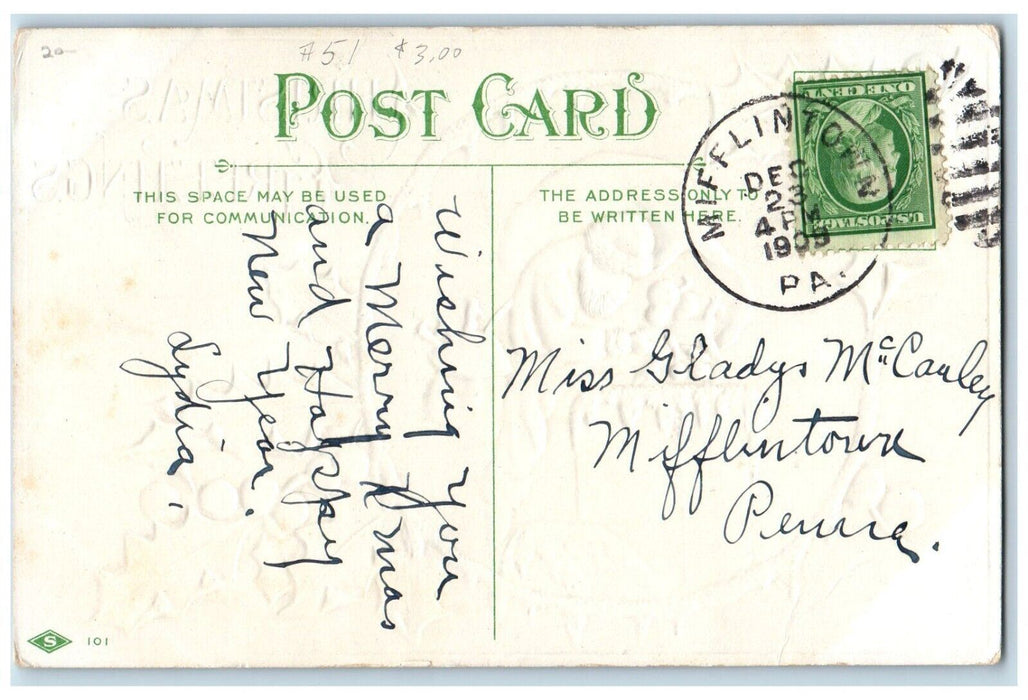 20-
#51 $3,00
POST CARD
THIS SPACE MAY BE USED
FOR COMMUNICATION.
THE ADDRESS ONLY TO
BE WRITTEN HERE.
MIFFLINTOWN
DEC
23
4 PM
1909
PA.
ONE CENT
U.S. POSTAGE
Wishing you
a Merry Xmas
and Happy
New Year.
Lydia.
Miss Gladys McCauley
Mifflintown
Penna.
S 101